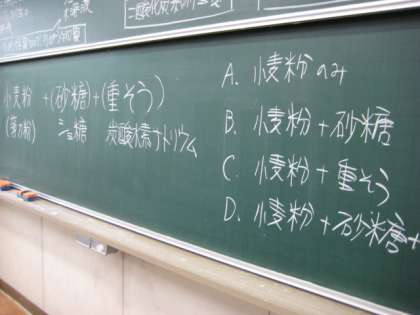 小麦粉 +(砂糖)+(重そう)
(薄力粉) ショ糖 炭酸水素ナトリウム
A. 小麦粉のみ
B. 小麦粉+砂糖
C. 小麦粉+重そう
D. 小麦粉+砂糖+